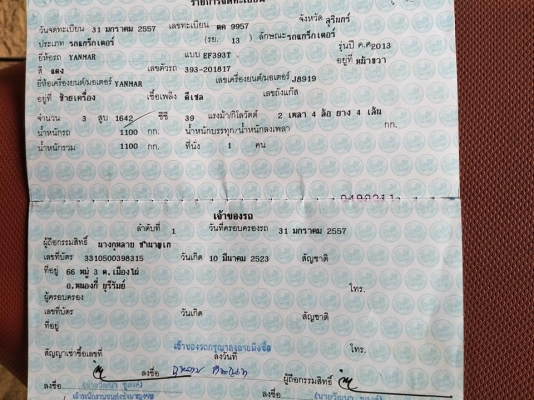 รายการจดทะเบียน
วันจดทะเบียน 31 มกราคม 2557 เลขทะเบียน ตค 9957 จังหวัด สุรินทร์
ประเภท รถแทร็กเตอร์ (รย. 13 ) ลักษณะรถแทร็กเตอร์
ยี่ห้อรถ YANMAR แบบ EF393T รุ่นปี ค.ศ2013
สี แดง เลขตัวรถ 393-201817 อยู่ที่ หน้าขวา
ยี่ห้อเครื่องยนต์/มอเตอร์ YANMAR เลขเครื่องยนต์/มอเตอร์ J8919
อยู่ที่ ซ้ายเครื่อง เชื้อเพลิง ดีเซล เลขถังแก๊ส
จำนวน 3 สูบ 1642 ซีซี 39 แรงม้า/กิโลวัตต์ 2 เพลา 4 ล้อ ยาง 4 เส้น
น้ำหนักรถ 1100 กก. น้ำหนักบรรทุก/น้ำหนักลงเพลา กก.
น้ำหนักรวม 1100 กก. ที่นั่ง 1 คน
เจ้าของรถ
ลำดับที่ 1 วันที่ครอบครองรถ 31 มกราคม 2557
ผู้ถือกรรมสิทธิ์ นางกุหลาบ
เลขที่บัตร 3310500398315 วันเกิด 10 มีนาคม 2523 สัญชาติ
ที่อยู่ 66 หมู่ 3 ต.เมืองไผ่
อ.หนองกี่ บุรีรัมย์ โทร.
ผู้ครอบครอง
เลขที่บัตร วันเกิด สัญชาติ
ที่อยู่
เจ้าของรถกรุณาลงลายมือชื่อ โทร.
สัญญาเช่าซื้อเลขที่ ลงวันที่
ลงชื่อ ผู้ถือกรรมสิทธิ์
ลงชื่อ